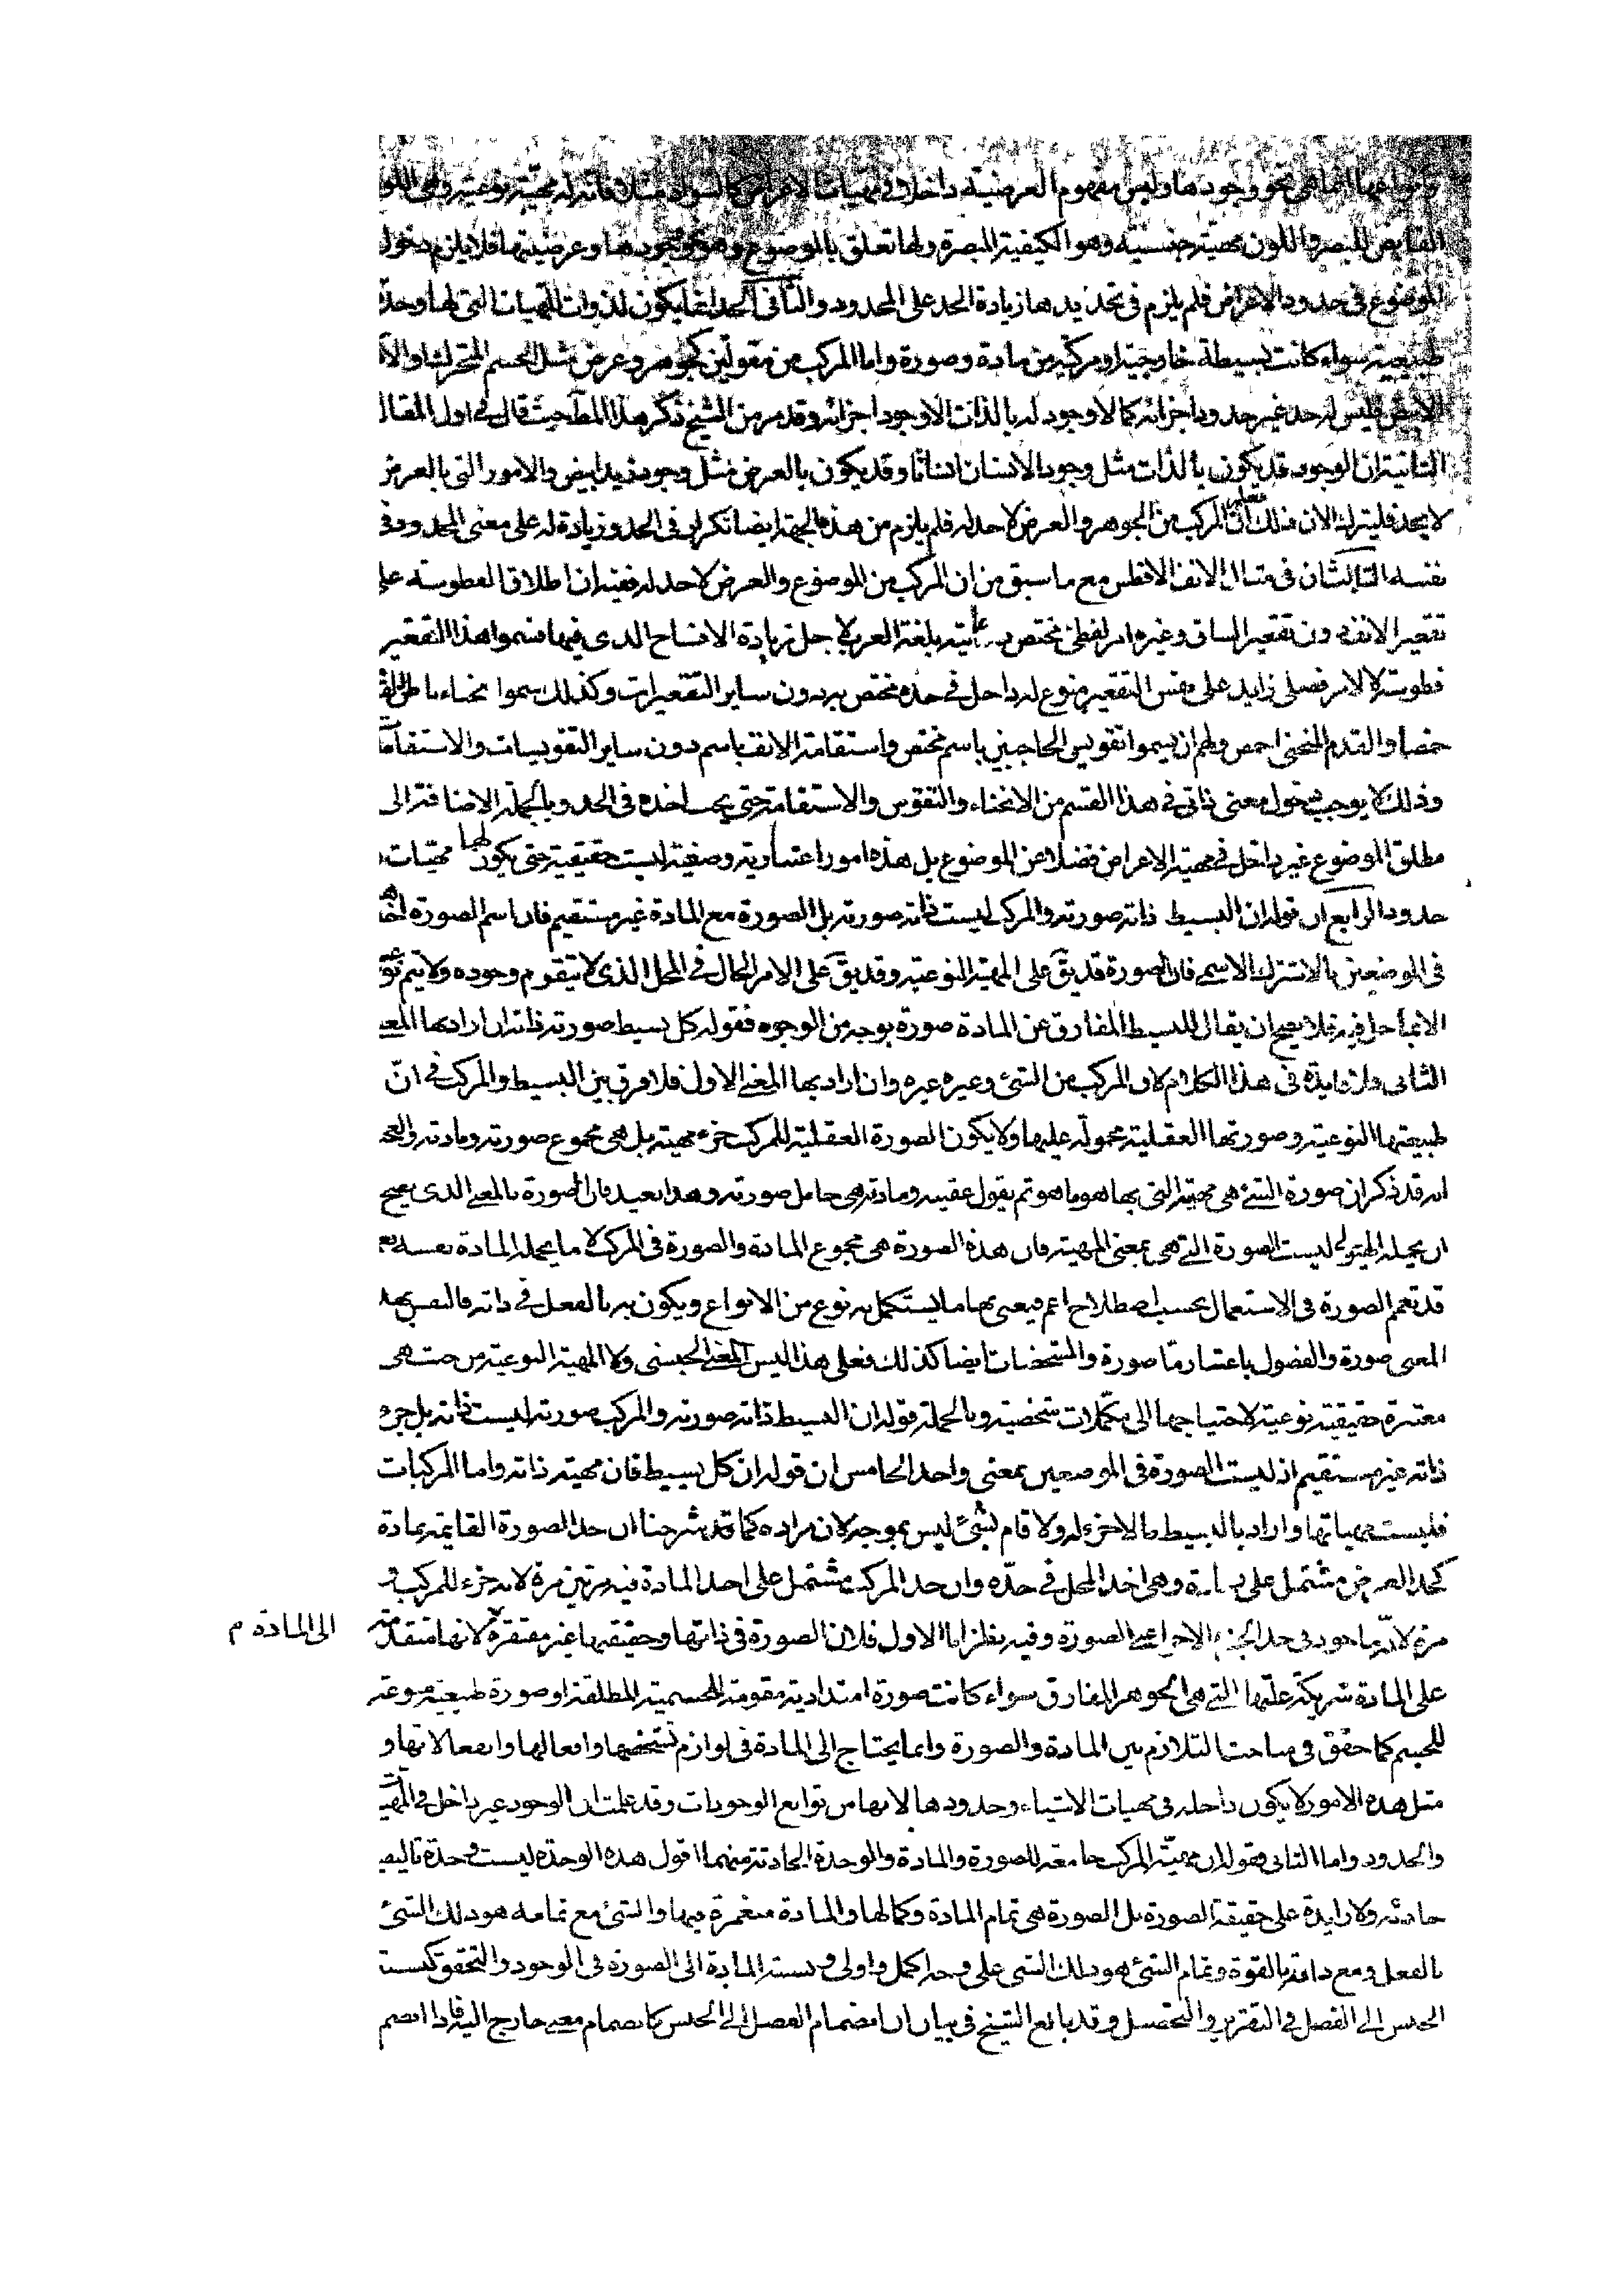 وانواعها انما هي نحو وجودها وليس مفهوم العرضية داخلا في مهيات الاعراض كالسواد مثلا فانه له مهية نوعية وهي اللون
القابض للبصر واللون مهية جنسية وهو الكيفية المبصرة ولها تعلق بالموضوع وهو نحو وجودها وعرضيتها فلا يلزم دخول
الموضوع في حدود الاعراض فلم يلزم في تحديدها زيادة الحد على المحدود والثاني الحد انما يكون لذوات المهيات التي لها وحدة
طبيعية سواء كانت بسيطة خارجية او مركبة من مادة وصورة واما المركب من مقولتين كجوهر وعرض مثل الجسم المتحرك والا
الابيض فليس له حد غير حدود اجزائه كما لا وجود له بالذات الا وجود اجزائه وقد مر من الشيخ ذكر هذا المط حيث قال في اول المقالة
الثانية ان الوجود قد يكون بالذات مثل وجود الانسان انسانا وقد يكون بالعرض مثل وجود زيد ابيض والامور التي بالعرض
لا يحد فليترك الان ذلك فعلم ان المركب من الجوهر والعرض لا حد له فلم يلزم من هذه الجهة ايضا تكرار في الحد وزيادة له على معنى المحدود في
نفسه الثالث ان في مثال الانف الافطس مع ما سبق من ان المركب من الموضوع والعرض لا حد له ففيه ان اطلاق الفطوسة على
تقعير الانف دون تقعير الساق وغيره امر لفظي مختص بلغة العرب لاجل زيادة الافصاح الذي فيها فسموا هذا التقعير
فطوسة لا لامر فصلي زايد على نفس التقعير منوع له داخل في حده مختص به دون ساير التقعيرات وكذلك سموا انحناء باطن القدم
خمصا والقدم المنحني اخمص ولهم ان يسموا تقويس الحاجبين باسم مختص واستقامة الانف باسم دون ساير التقويسات والاستقامات
وذلك لا يوجب دخول معنى ذاتي في هذا القسم من الانحناء والتقوس والاستقامة حتى يجب اخذه في الحد وبالجملة الاضافة الى
مطلق الموضوع غير داخل في مهية الاعراض فضلا عن الموضوع بل هذه امور اعتبارية وصفية ليست حقيقية حتى يكون لها مهيات و
حدود الرابع ان قوله ان البسيط ذاته صورته والمركب ليست ذاته صورته بل الصورة مع المادة غير مستقيم فان اسم الصورة اخذها
في الموضعين بالاشتراك الاسمي فان الصورة قد يق على المهية النوعية وقد يق على الامر الحال في المحل الذي لا يتقوم وجوده ولا يتم نوعه
الا بما حل فيه فلا يصح ان يقال للبسيط المفارق عن المادة صورة بوجه من الوجوه فقوله كل بسيط صورته ذاته ان اراد بها المعنى
الثاني فلا فايدة في هذا الكلام لان المركب من الشئ وغيره غيره وان اراد بها المعنى الاول فلا فرق بين البسيط والمركب في انّ
طبيعتها النوعية وصورتها العقلية محمولة عليها ولا يكون الصورة العقلية للمركب جزء مهية بل هي مجموع صورته ومادته والعجب
انه قد ذكر ان صورة الشئ هي مهيته التي بها هو ما هو ثم يقول عقيبه ومادته هي حامل صورته وهذا بعيد فان الصورة بالمعنى الذي يصح
ان يحمله الهيولى ليست الصورة التي هي بمعنى المهية فان هذه الصورة هي مجموع المادة والصورة في المركب لا ما يحمله المادة نفسه نعم
قد تعم الصورة في الاستعمال بحسب اصطلاح اعم فيعنى بها ما يستكمل به نوع من الانواع ويكون به بالفعل في ذاته فالنفس بهذا
المعنى صورة والفصول باعتبار ما صورة والمشخصات ايضا كذلك فعلى هذا ليس المعنى الجنسي ولا المهية النوعية من حيث هي
معتبرة حقيقية نوعية لاحتياجها الى مكملات شخصية وبالجملة قوله ان البسيط ذاته صورته والمركب صورته ليست ذاته بل جزء
ذاته غير مستقيم اذ ليست الصورة في الموضعين بمعنى واحد الخامس ان قوله ان كل بسيط فان مهيته ذاته واما المركبات
فليست مهياتها واراد بالبسيط ما لا جزء له ولا قام بشئ ليس بموجه لان مراده كما قد شرحنا ان حد الصورة القايمة بمادة
كحد العرض مشتمل على زيادة وهي اخذ المحل في حدّه وان حد المركب مشتمل على اخذ المادة فيه مرتين مرة لانه جزء للمركب و
مرة لانّه ماخوذ في حد الجزء الاخر اعني الصورة وفيه نظر اما الاول فلان الصورة في ذاتها وحقيقتها غير مفتقرة لانها متقدمة
الى المادة م
على المادة شريكة علتها التي هي الجوهر المفارق سواء كانت صورة امتدادية مقومة للجسمية المطلقة او صورة طبيعية منوعة
للجسم كما حقق في مباحث التلازم بين المادة والصورة وانما يحتاج الى المادة في لوازم تشخصها وافعالها وانفعالاتها و
مثل هذه الامور لا يكون داخله في مهيات الاشياء وحدودها لانها من توابع الوجودات وقد علمت ان الوجود غير داخل في المهية
والحدود واما الثاني فقوله ان مهية المركب جامعة للصورة والمادة والوحدة الحادثة منهما اقول هذه الوحدة ليست وحدة تاليفية
حادثة ولا زايدة على حقيقة الصورة بل الصورة هي تمام المادة وكمالها والمادة منغمرة فيها والشئ مع تمامه هو ذلك الشئ
بالفعل ومع مادته بالقوة وتمام الشئ هو ذلك الشئ على وجه اكمل واولى ونسبته المادة الى الصورة في الوجود والتحقق كنسبة
الجنس الى الفصل في التقرير والتحصل وقد بالغ الشيخ في بيان ان انضمام الفصل الى الجنس كانضمام معنى خارج اليه فاذا انضم